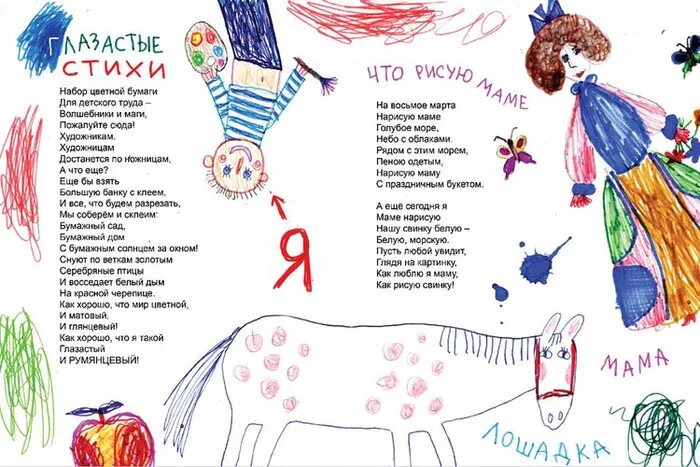 ГЛАЗАСТЫЕ
СТИХИ
Набор цветной бумаги
Для детского труда –
Волшебники и маги,
Пожалуйте сюда!
Художникам,
Художницам
Достанется по ножницам,
А что еще?
Еще бы взять
Большую банку с клеем,
И все, что будем разрезать,
Мы соберём и склеим:
Бумажный сад,
Бумажный дом
С бумажным солнцем за окном!
Снуют по веткам золотым
Серебряные птицы
И восседает белый дым
На красной черепице.
Как хорошо, что мир цветной,
И матовый,
И глянцевый!
Как хорошо, что я такой
Глазастый
И РУМЯНЦЕВЫЙ!
Я
ЧТО РИСУЮ МАМЕ
На восьмое марта
Нарисую маме
Голубое море,
Небо с облаками.
Рядом с этим морем,
Пеною одетым,
Нарисую маму
С праздничным букетом.
А ещё сегодня я
Маме нарисую
Нашу свинку белую –
Белую, морскую.
Пусть любой увидит,
Глядя на картинку,
Как люблю я маму,
Как рисую свинку!
МАМА
ЛОШАДКА